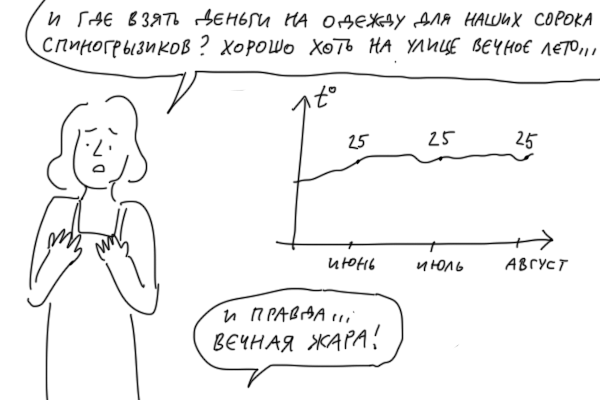 И ГДЕ ВЗЯТЬ ДЕНЬГИ НА ОДЕЖДУ ДЛЯ НАШИХ СОРОКА
СПИНОГРЫЗИКОВ? ХОРОШО ХОТЬ НА УЛИЦЕ ВЕЧНОЕ ЛЕТО...
t°
25 25 25
ИЮНЬ ИЮЛЬ АВГУСТ
И ПРАВДА...
ВЕЧНАЯ ЖАРА!